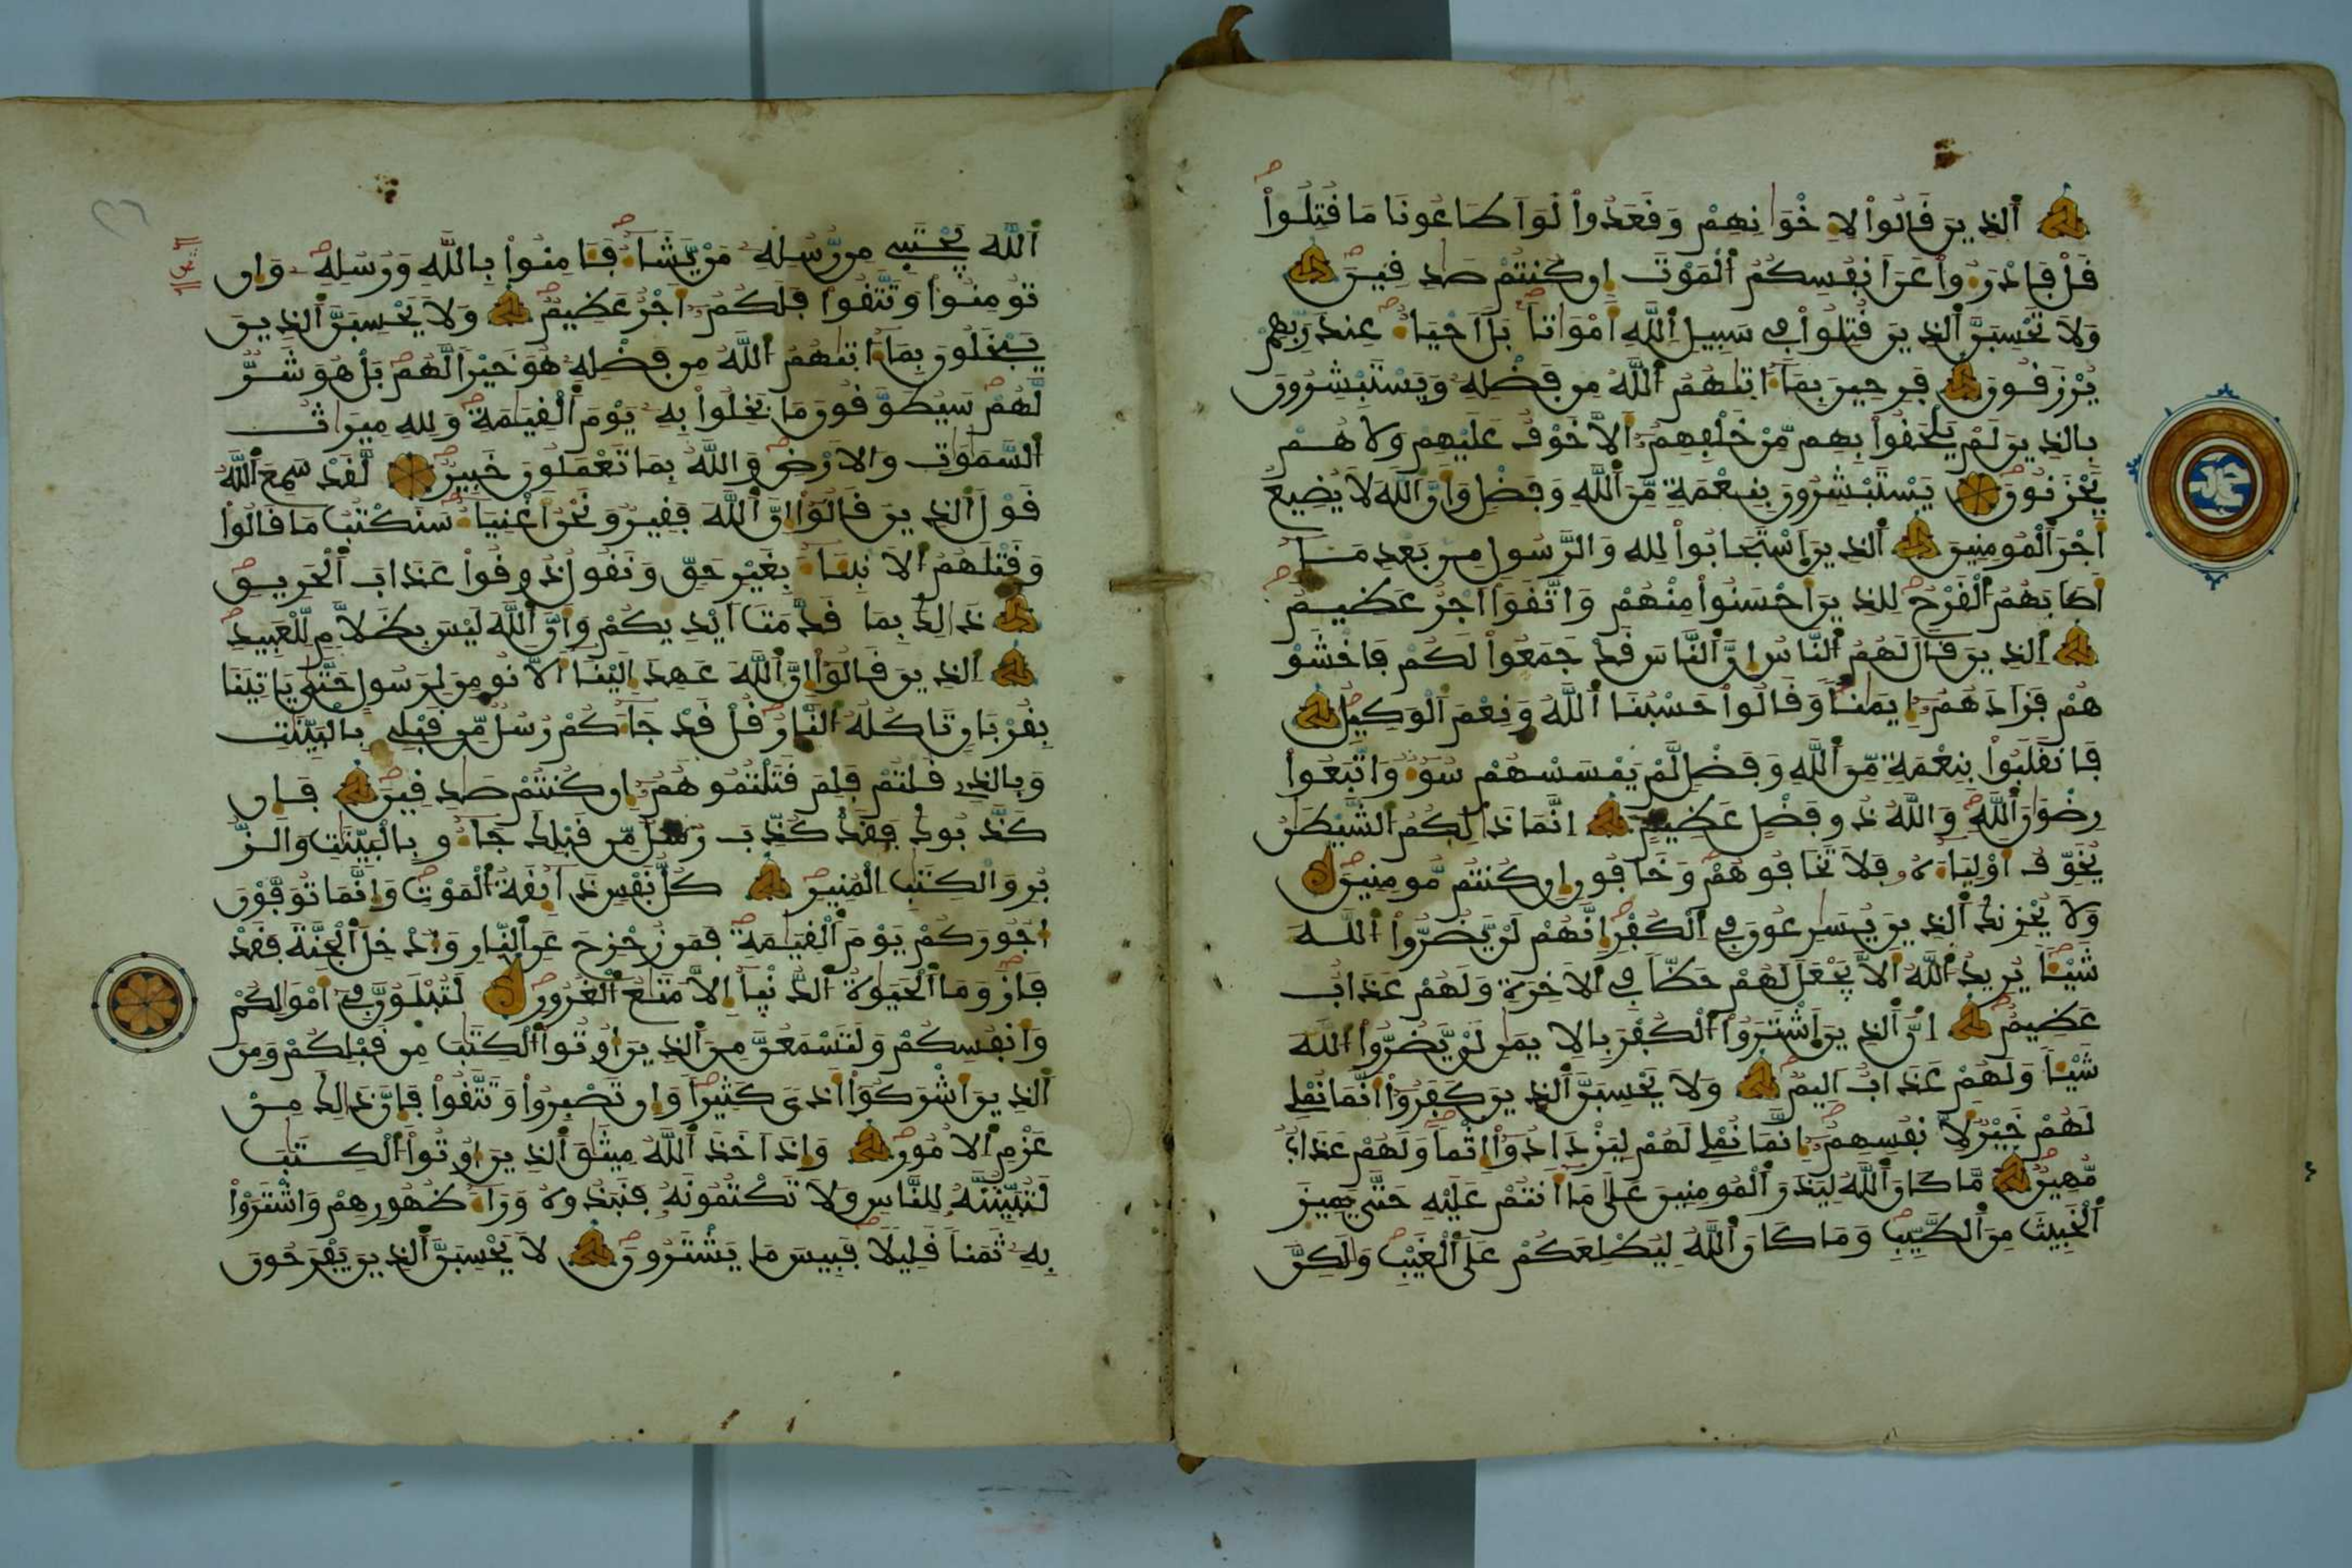 الذين قالوا لإخوانهم وقعدوا لو اطاعونا ما قتلوا
قل فادرءوا عن انفسكم الموت إن كنتم صدقين
ولا تحسبن الذين قتلوا في سبيل الله أمواتا بل احياء عند ربهم
يرزقون فرحين بما ءاتيهم الله من فضله ويستبشرون
بالذين لم يلحقوا بهم من خلفهم ألا خوف عليهم ولا هم
يحزنون يستبشرون بنعمة من الله وفضل وأن الله لا يضيع
أجر المومنين الذين استجابوا لله والرسول من بعد ما
أصابهم القرح للذين أحسنوا منهم واتقوا اجر عظيم
الذين قال لهم الناس إن الناس قد جمعوا لكم فاخشو
هم فزادهم إيمنا وقالوا حسبنا الله ونعم الوكيل
فانقلبوا بنعمة من الله وفضل لم يمسسهم سوء واتبعوا
رضوان الله والله ذو فضل عظيم إنما ذالكم الشيطن
يخوف أولياءه فلا تخافوهم وخافون إن كنتم مومنين
ولا يحزنك الذين يسرعون في الكفر إنهم لن يضروا الله
شيئا يريد الله ألا يجعل لهم حظا في الاخرة ولهم عذاب
عظيم إن الذين اشتروا الكفر بالايمن لن يضروا الله
شيئا ولهم عذاب اليم ولا يحسبن الذين كفروا أنما نملي
لهم خير لأنفسهم إنما نملي لهم ليزدادوا إثما ولهم عذاب
مهين ما كان الله ليذر المومنين على ما أنتم عليه حتى يميز
الخبيث من الطيب وما كان الله ليطلعكم على الغيب ولكن
الله يجتبي من رسله من يشاء فـامنوا بالله ورسله وإن
تومنوا وتتقوا فلكم أجر عظيم ولا يحسبن الذين
يبخلون بما ءاتيهم الله من فضله هو خيرا لهم بل هو شر
لهم سيطوقون ما بخلوا به يوم القيمة ولله ميراث
السموت والارض والله بما تعملون خبير لقد سمع الله
قول الذين قالوا إن الله فقير ونحن أغنياء سنكتب ما قالوا
وقتلهم الانبئاء بغير حق ونقول ذوقوا عذاب الحريق
ذالك بما قدمت ايديكم وأن الله ليس بظلام للعبيد
الذين قالوا إن الله عهد إلينا ألا نومن لرسول حتى ياتينا
بقربان تاكله النار قل قد جاءكم رسل من قبلي بالبينت
وبالذي قلتم فلم قتلتموهم إن كنتم صدقين فإن
كذبوك فقد كذب رسل من قبلك جاءو بالبينت والز
بر والكتب المنير كل نفس ذائقة الموت وإنما توفون
أجوركم يوم القيمة فمن زحزح عن النار وأدخل الجنة فقد
فاز وما الحيوة الدنيا إلا متع الغرور لتبلون في أموالكم
وأنفسكم ولتسمعن من الذين أوتوا الكتب من قبلكم ومن
الذين أشركوا أذى كثيرا وإن تصبروا وتتقوا فإن ذالك من
عزم الامور وإذ اخذ الله ميثق الذين أوتوا الكتب
لتبيننه للناس ولا تكتمونه فنبذوه وراء ظهورهم واشتروا
به ثمنا قليلا فبيس ما يشترون لا يحسبن الذين يفرحون